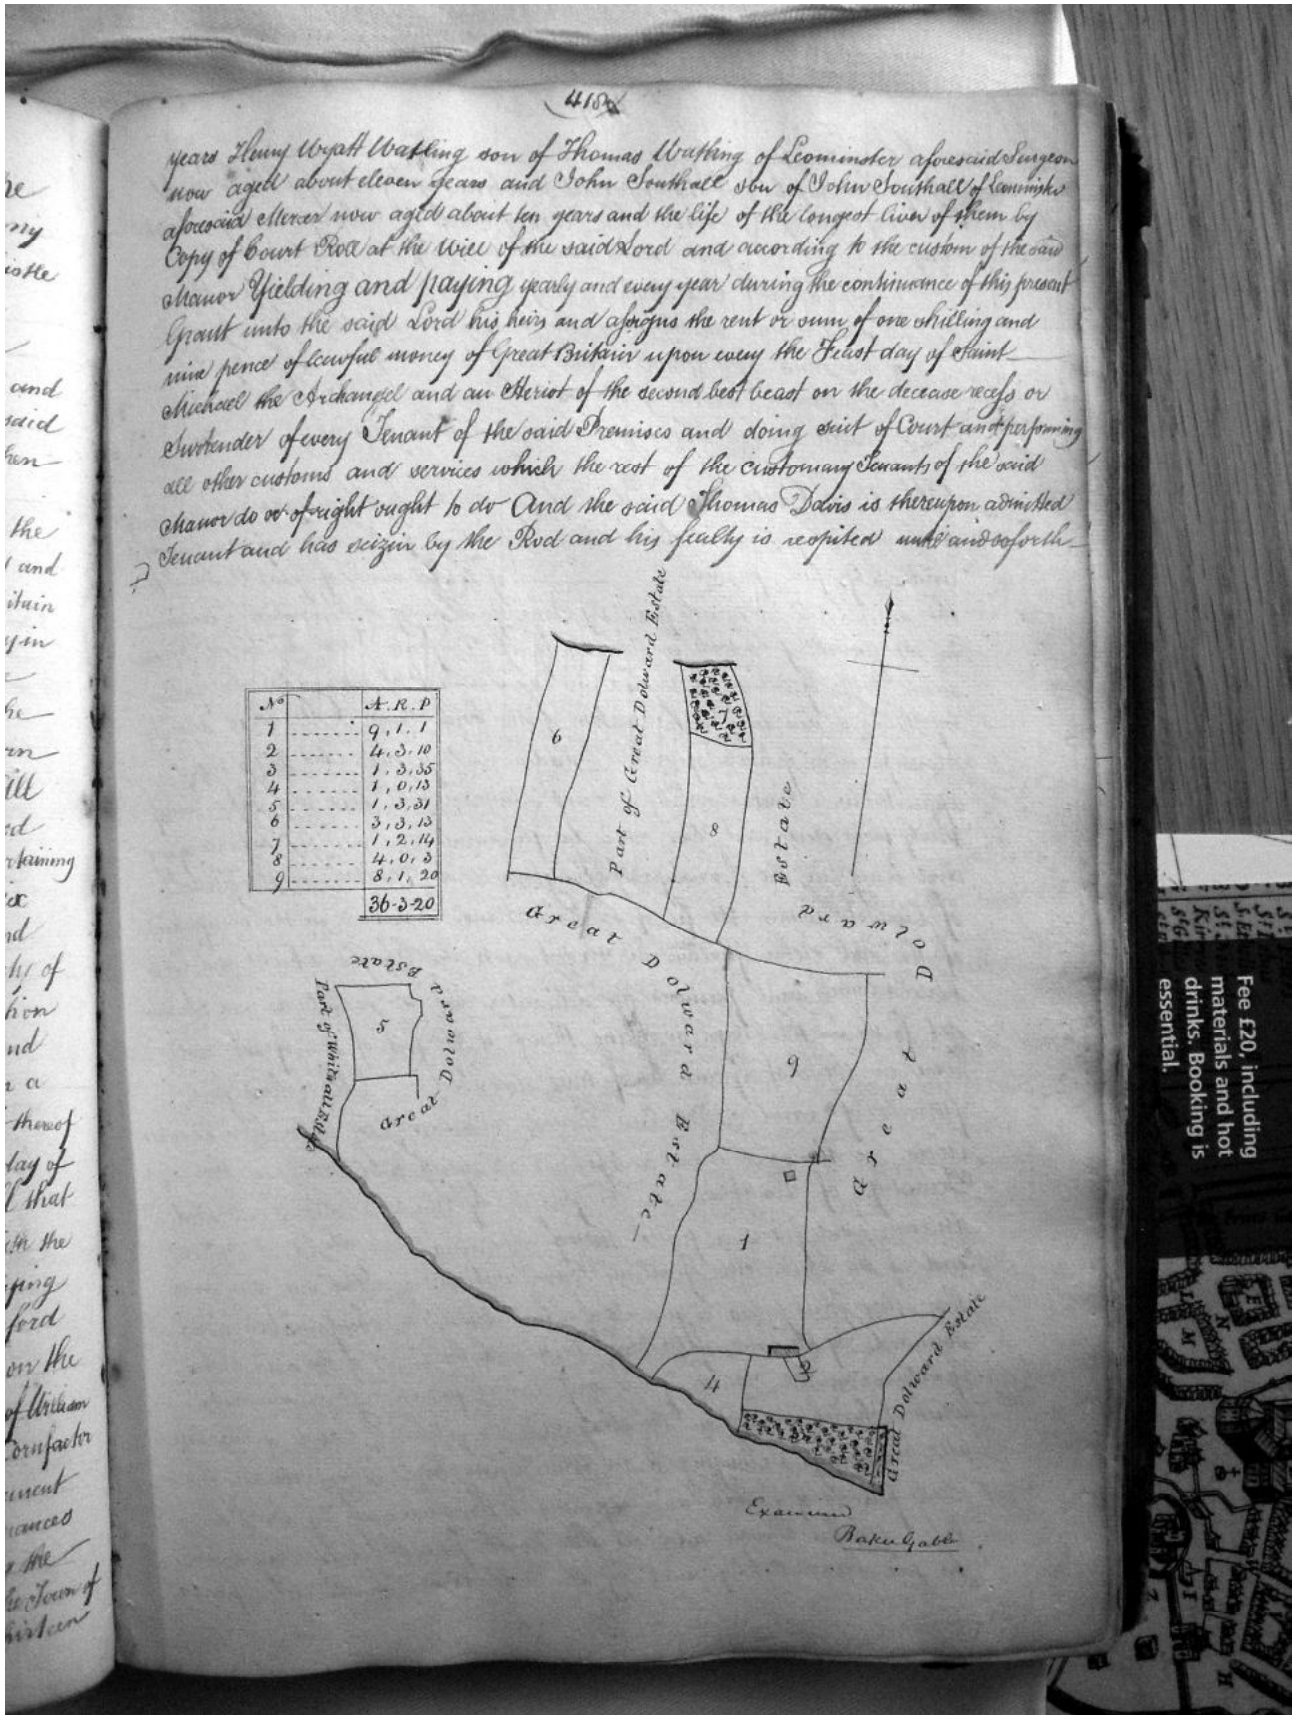 (415)
years Henry Wyatt Watling son of Thomas Watling of Leominster aforesaid Surgeon
now aged about eleven years and John Southall son of John Southall of Leominster
aforesaid Mercer now aged about ten years and the life of the longest liver of them by
Copy of Court Roll at the will of the said Lord and according to the custom of the said
Manor Yielding and paying yearly and every year during the continuance of this present
Grant unto the said Lord his heirs and assigns the rent or sum of one shilling and
nine pence of lawful money of Great Britain upon every the Feast day of Saint
Michael the Archangel and an Heriot of the second best beast on the decease recess or
Surrender of every Tenant of the said Premises and doing suit of Court and performing
all other customs and services which the rest of the customary Tenants of the said
Manor do or of right ought to do And the said Thomas Davis is thereupon admitted
Tenant and has seizin by the Rod and his fealty is respited until and soforth
No A. R. P
1 9, 1, 1
2 4, 3, 10
3 1, 3, 35
4 1, 0, 13
5 1, 3, 31
6 3, 3, 13
7 1, 2, 14
8 4, 0, 3
9 8, 1, 20
36-3-20
6
Part of Great Dolward Estate
7
8
Great Dolward Estate
Great Dolward Estate
5
Great Dolward Estate
Part of
9
1
4
Great Dolward Estate
Examined
and
said
the
and
itain
y in
he
ill
rtaining
ly of
a
thereof
lay of
that
the
ping
ford
on the
of William
Cornfactor
the
the Town of
Fee £20, including
materials and hot
drinks. Booking is
essential.